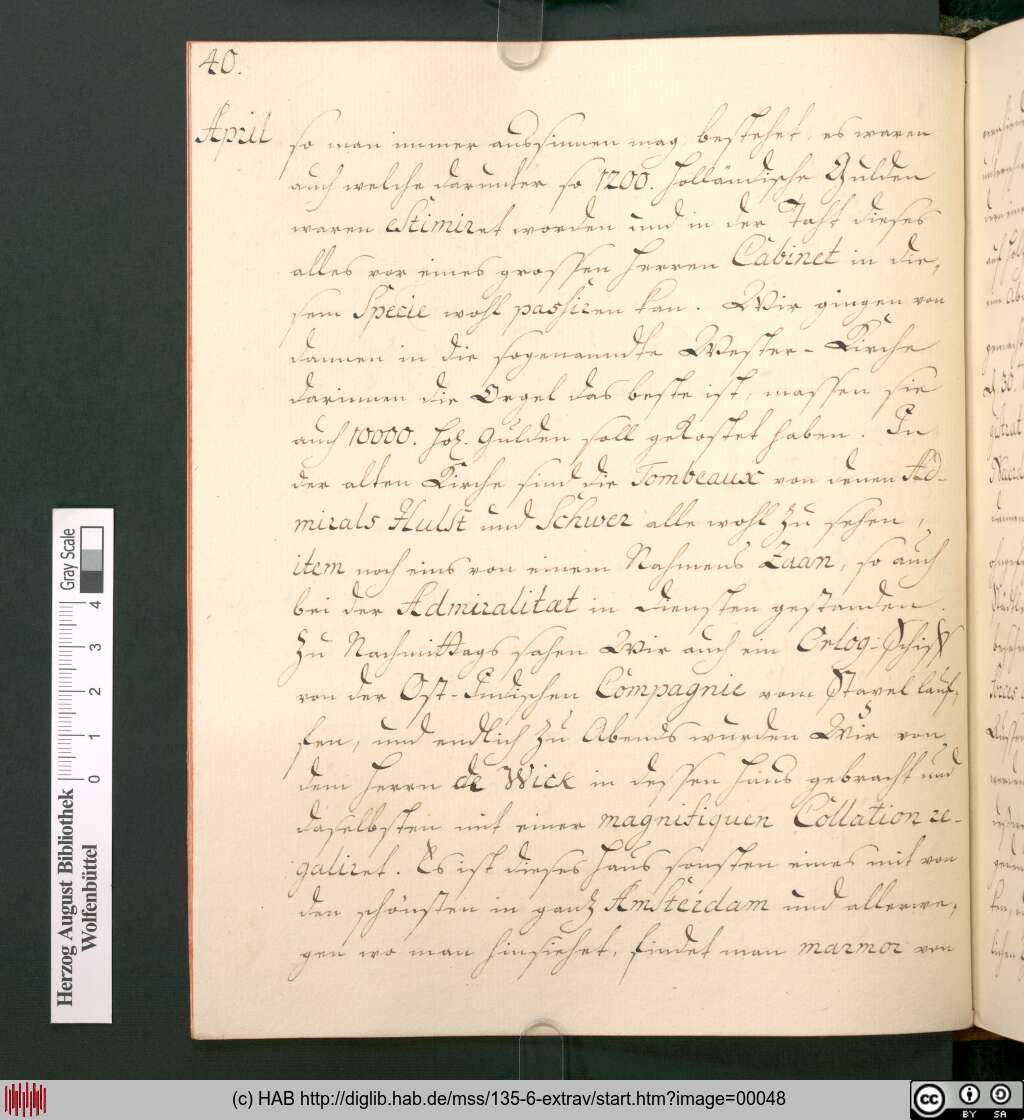 40.
April
so man immer aussinnen mag, bestehet, es waren
auch welche darunter so 1200. Holländische Gulden
waren estimiret worden und in der Taht dieses
alles vor eines grossen Herren Cabinet in die,
sem Specie wohl passiren kan. Wir gingen von
dannen in die sogenanndte Wester-Kirche
darinnen die Orgel das beste ist, massen sie
auch 10000. Hol. Gulden soll gekostet haben. In
der alten Kirche sind die Tombeaux von denen Ad-
mirals Hulst und Schwer alle wohl zu sehen,
item noch eins von einem Nahmens Zaan, so auch
bei der Admiralitat in Diensten gestanden.
Zu Nachmittags sahen Wir auch ein Orlog-Schiff
von der Ost-Indischen Compagnie vom Stapel lauf,
fen, und endlich zu Abends wurden Wir von
dem Herrn de Wick in dessen Haus gebracht und
daselbsten mit einer magnifiquen Collation re-
galiret. Es ist dieses Haus sonsten eines mit von
den schönsten in gantz Amsterdam und allerwe,
gen wo man hinsiehet, findet man marmor von
Gray Scale
4
3
2
1
0
Herzog August Bibliothek
Wolfenbüttel
(c) HAB http://diglib.hab.de/mss/135-6-extrav/start.htm?image=00048
cc BY SA